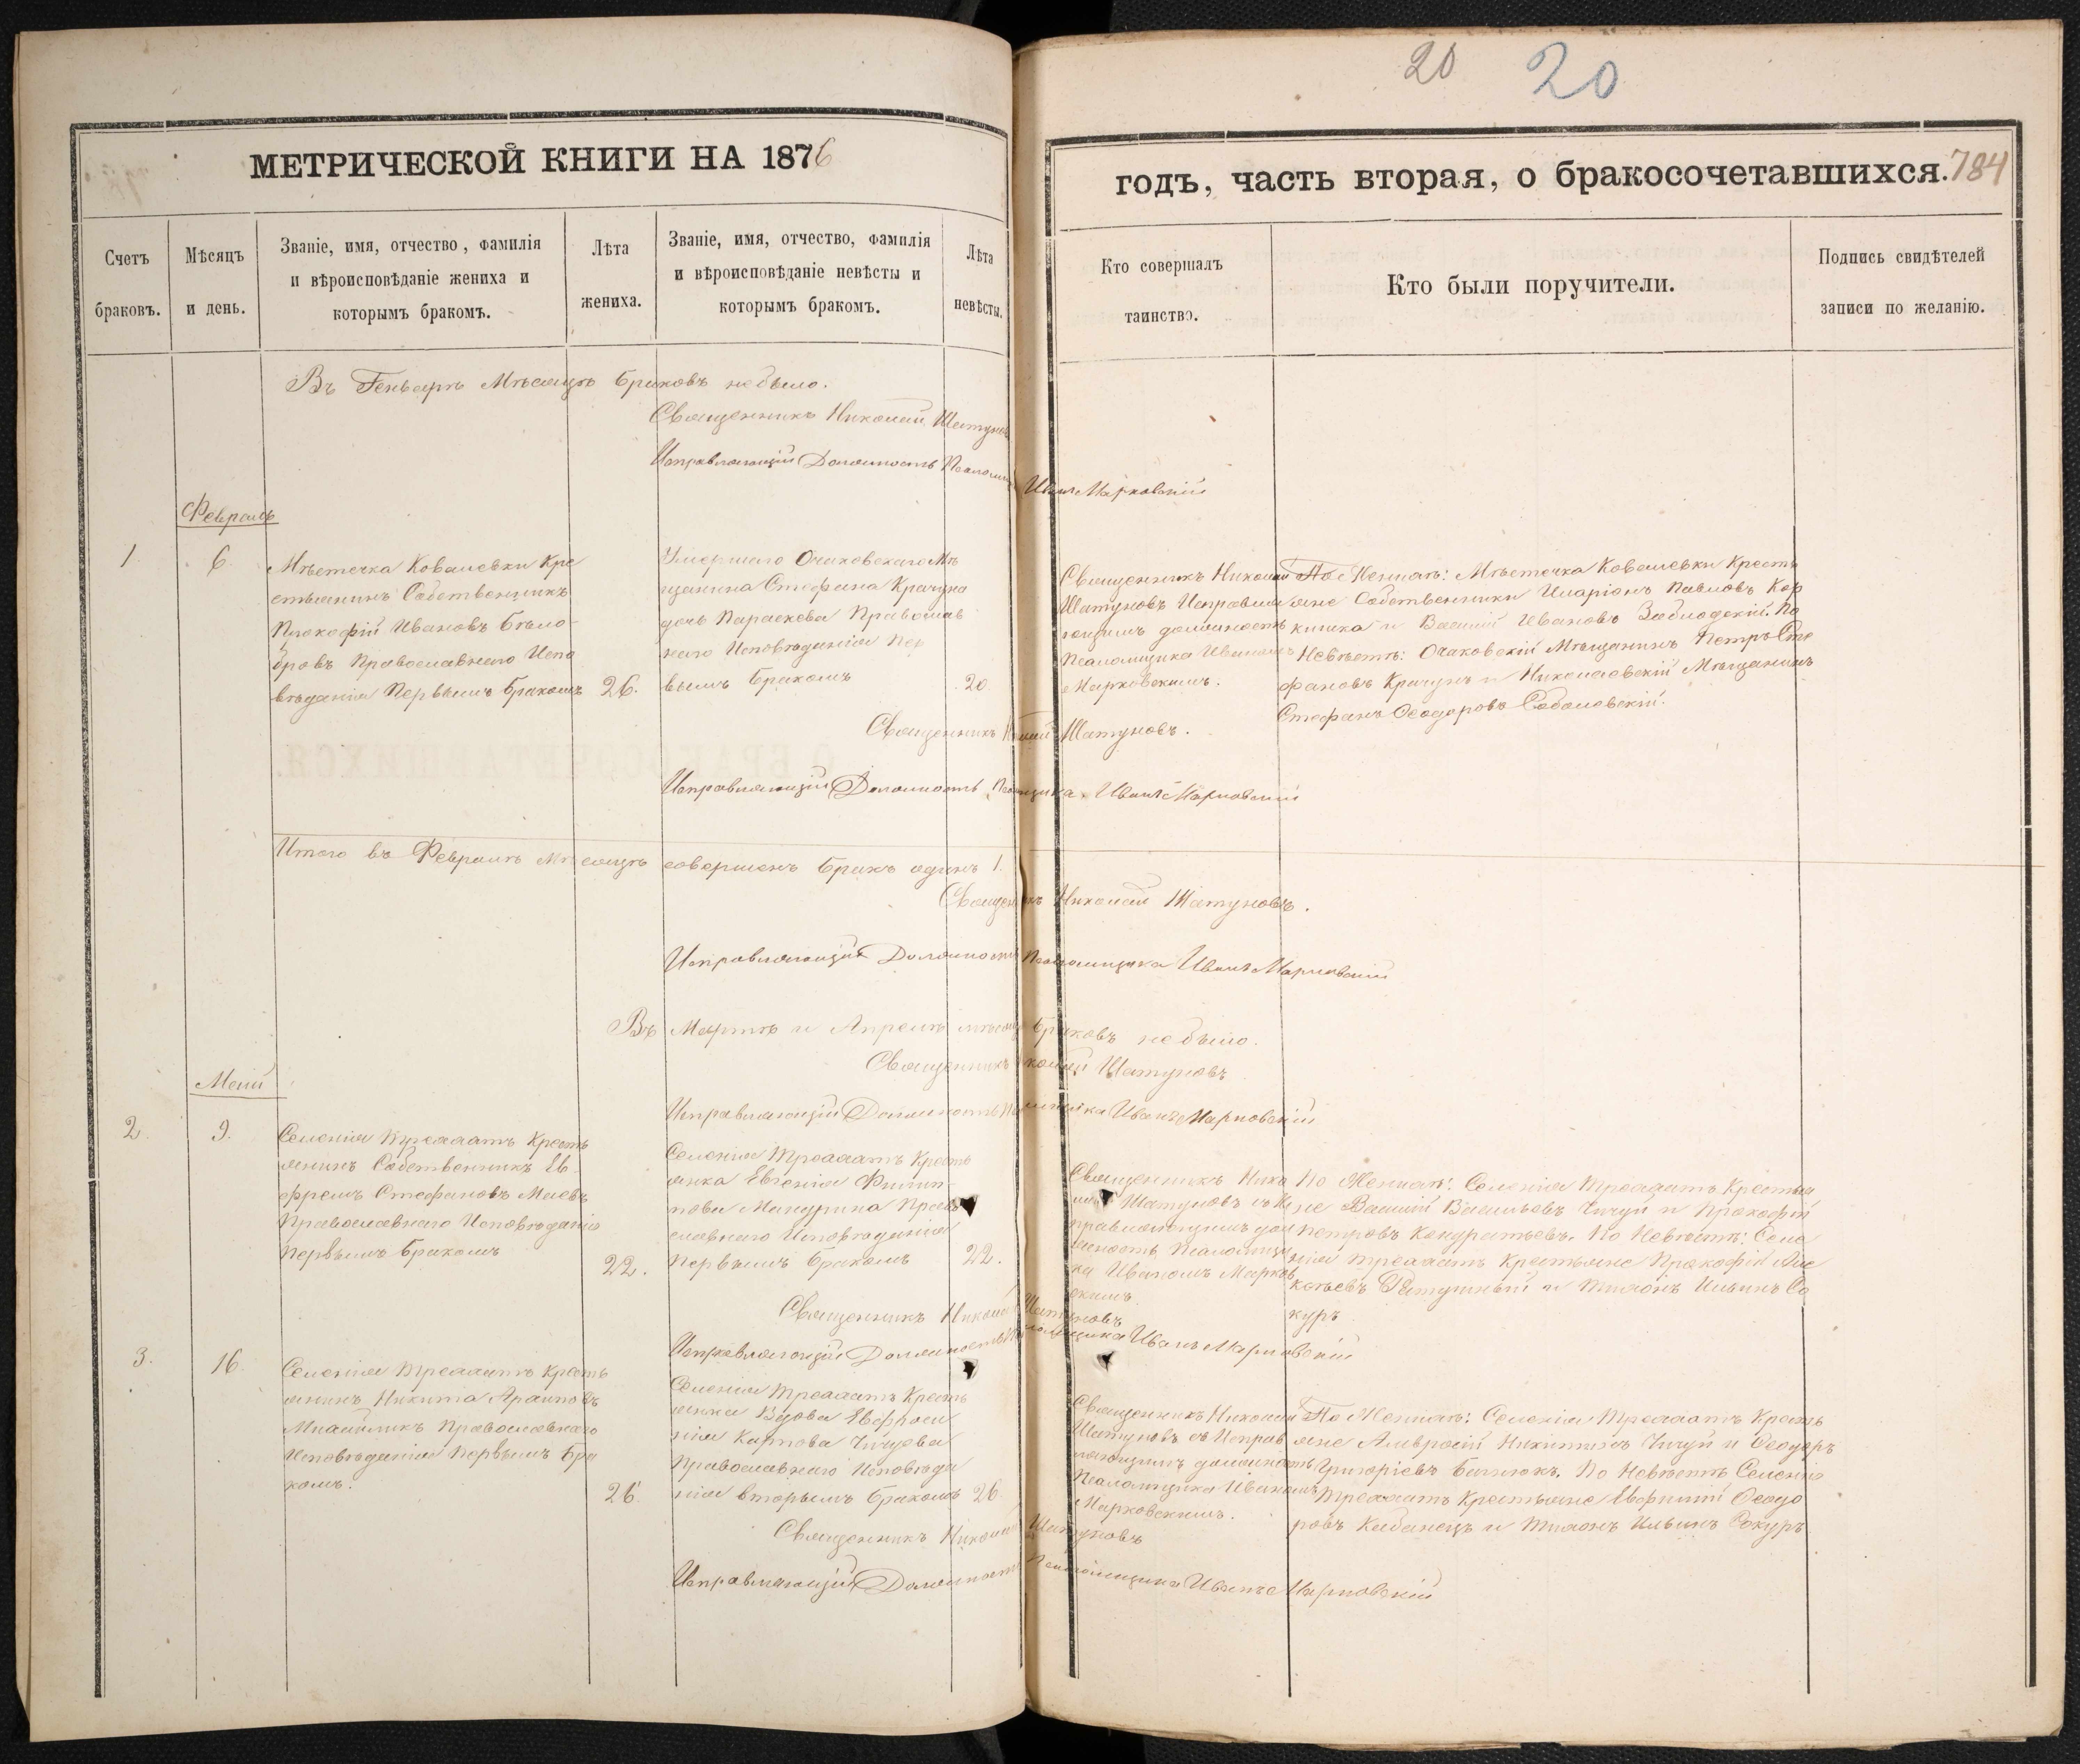 20 20
МЕТРИЧЕСКОЙ КНИГИ НА 1876
годъ, часть вторая, о бракосочетавшихся. 784
Счетъ
браковъ.
Мѣсяцъ
и день.
Званіе, имя, отчество, фамилія
и вѣроисповѣданіе жениха и
которымъ бракомъ.
Лѣта
жениха.
Званіе, имя, отчество, фамилія
и вѣроисповѣданіе невѣсты и
которымъ бракомъ.
Лѣта
невѣсты.
Кто совершалъ
таинство.
Кто были поручители.
Подпись свидѣтелей
записи по желанію.
Въ Генварѣ Мѣсяцѣ браковъ не было.
Священникъ Николай Шатуновъ
Исправляющій Должность Псаломщ Иванъ Марковскій
Февраль
1. 6.
Мѣстечка Ковалевки Кре
стьянинъ Собственникъ
Прокофій Ивановъ Бѣло-
бровъ Православнаго Испо
вѣданія Первымъ бракомъ
26.
Умершаго Очаковскаго Мѣ
щанина Стефана Крачуна
дочь Параскева Православ
наго Исповѣданія Пер
вымъ бракомъ
20
Священникъ Николай
Шатуновъ Исправля
ющимъ должность
Псаломщика Иваномъ
Марковскимъ.
По Женихѣ: Мѣстечка Ковалевки Кресть
яне Собственники Иларіонъ Павловъ Кор
кника и Василій Ивановъ Заблодскій. По
Невѣстѣ: Очаковскій Мѣщанинъ Петръ Сте
фановъ Крачунъ и Николаевскій Мѣщанинъ
Стефанъ Ѳеодоровъ Соболовскій.
Священникъ Шатуновъ.
Исправляющій Должность Псаломщика Иванъ Марковскій
Итого въ Февралѣ Мѣсяцѣ совершенъ бракъ одинъ 1.
Священникъ Николай Шатуновъ.
Исправляющій Должность Псаломщика Иванъ Марковскій
Въ Мартѣ и Апрелѣ мѣсяцѣ браковъ не было.
Священникъ Николай Шатуновъ
Исправляющій Должность Псаломщика Иванъ Марковскій
Май
2. 9.
Селенія Кресть
янинъ Собственникъ Ев
фремъ Стефановъ Маевъ
Православнаго Исповѣданія
первымъ бракомъ
22.
Селенія Кресть
янка Евгенія Филип-
пова Мандрина Право
славнаго Исповѣданія
первымъ бракомъ
22.
Священникъ Нико
лай Шатуновъ съ Ис
правляющимъ дол
жность Псаломщи
ка Иваномъ Марков
скимъ
По Женихѣ: Селенія Крестья
не Василій Васильевъ Чичуй и Прокофій
Петровъ Кондратьевъ. По Невѣстѣ: Селе
нія Крестьяне Прокофій
и Тихонъ Ильинъ Со
куръ
Священникъ Николай Шатуновъ
Исправляющій Должность Псаломщика Иванъ Марковскій
3. 16
Селенія Кресть
янинъ Никита
Православнаго
Исповѣданія Первымъ бра
комъ.
26.
Селенія Кресть
янка Вдова Евфроси
нія Карпова Чичуева
Православнаго Исповѣда
нія вторымъ бракомъ
26
Священникъ Николай
Шатуновъ съ Исправ
ляющимъ должность
Псаломщика Иваномъ
Марковскимъ.
По Женихѣ: Селенія Кресть
яне Амвросій Никитинъ Чичуй и Ѳеодоръ
Григоріевъ. По Невѣстѣ Селенія
Крестьяне Евфимій Ѳеодо
ровъ Кабанецъ и Тихонъ Ильинъ Сокуръ
Священникъ Николай Шатуновъ
Исправляющій Должность Псаломщика Иванъ Марковскій